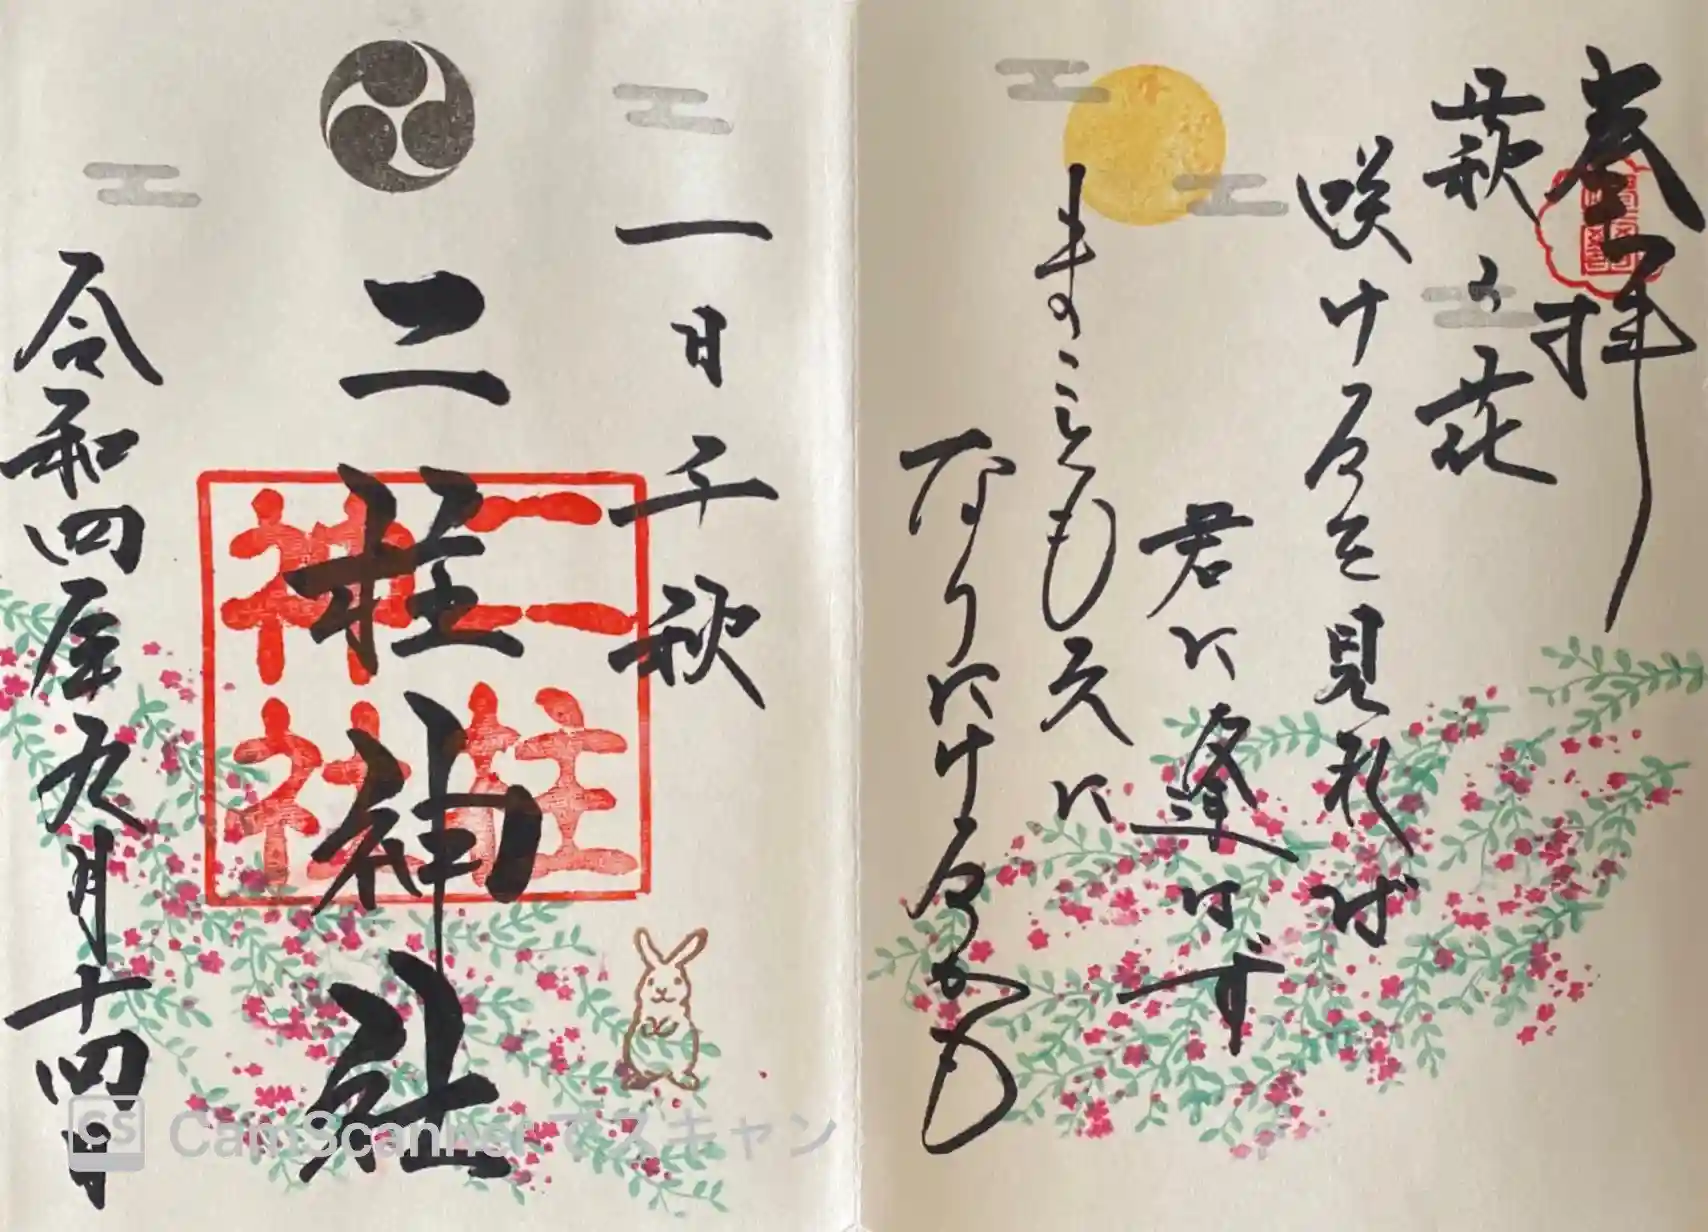 奉拝
萩の花
咲けるを見れば
君に逢はず
まことも久に
なりにけるかも
一日千秋
二柱神社
二柱
神社
令和四年九月十四日
CS CamScannerでスキャン